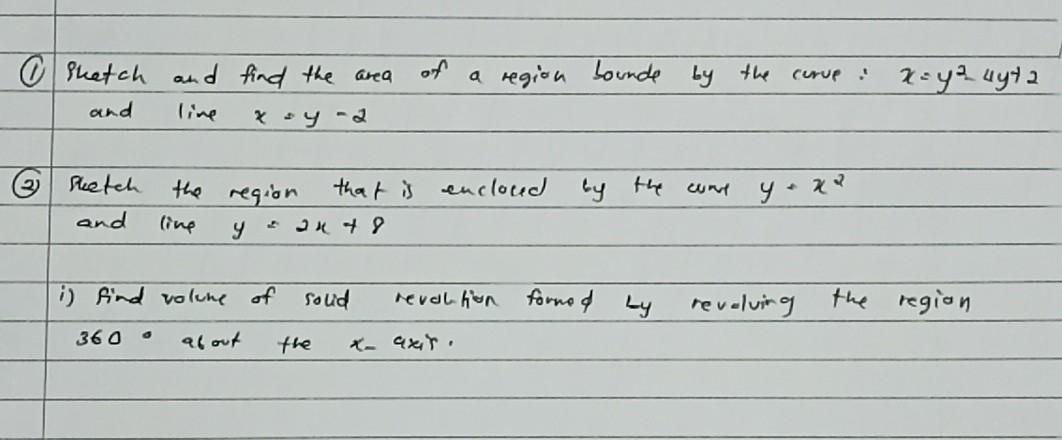 ① Sketch and find the area of a region bounde by the curve : x = y² - 4y + 2
and line x = y - 2
② Sketch the region that is enclosed by the curve y = x²
and line y = 2x + 8
i) Find volume of solid revolution formed by revolving the region
360° about the x - axis.